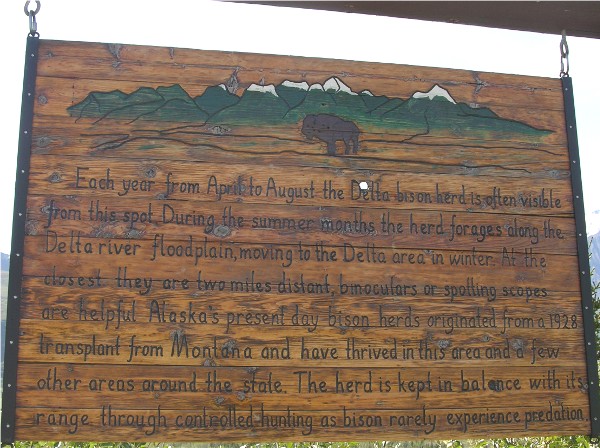 Each year from April to August the Delta bison herd is often visible
from this spot. During the summer months the herd forages along the
Delta river floodplain, moving to the Delta area in winter. At the
closest they are two miles distant, binoculars or spotting scopes
are helpful. Alaska's present day bison herds originated from a 1928
transplant from Montana and have thrived in this area and a few
other areas around the state. The herd is kept in balance with its
range through controlled hunting as bison rarely experience predation.